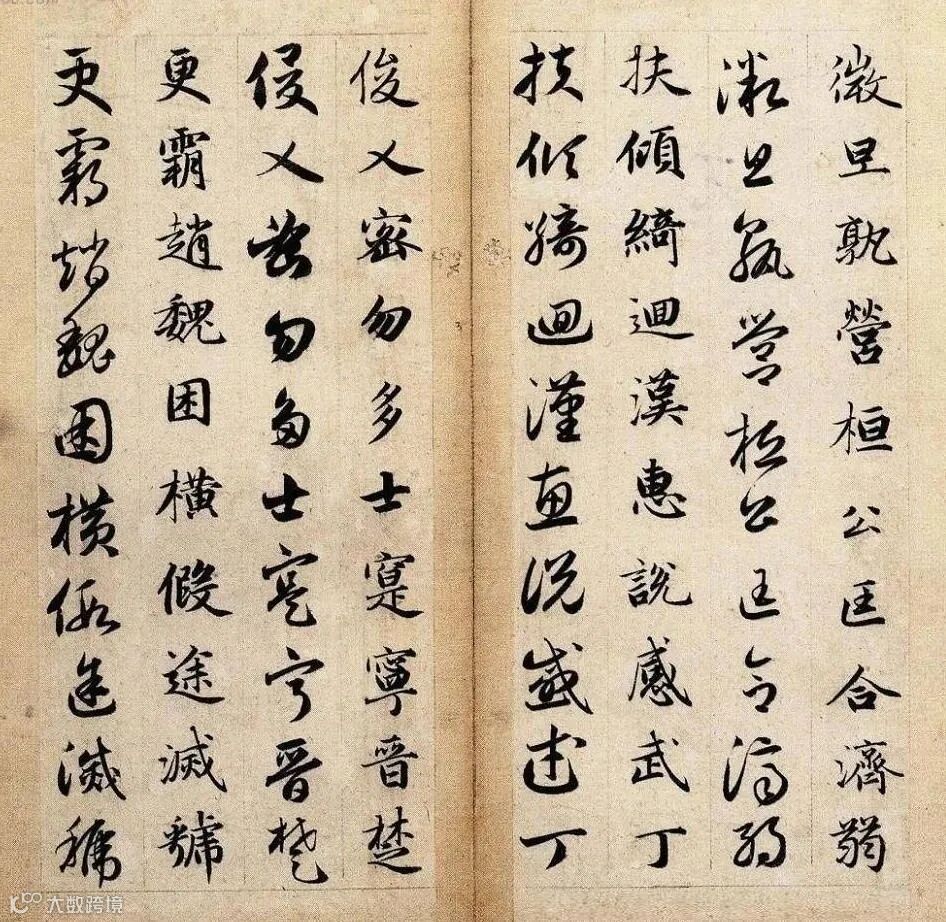 微旦孰營桓公匡合濟弱
微旦孰營桓公匡合濟弱
扶傾綺迴漢惠說感武丁
扶傾綺迴漢惠說感武丁
俊乂密勿多士寔寧晉楚
俊乂密勿多士寔寧晉楚
更霸趙魏困橫假途滅虢
更霸趙魏困橫假途滅虢
大数跨境